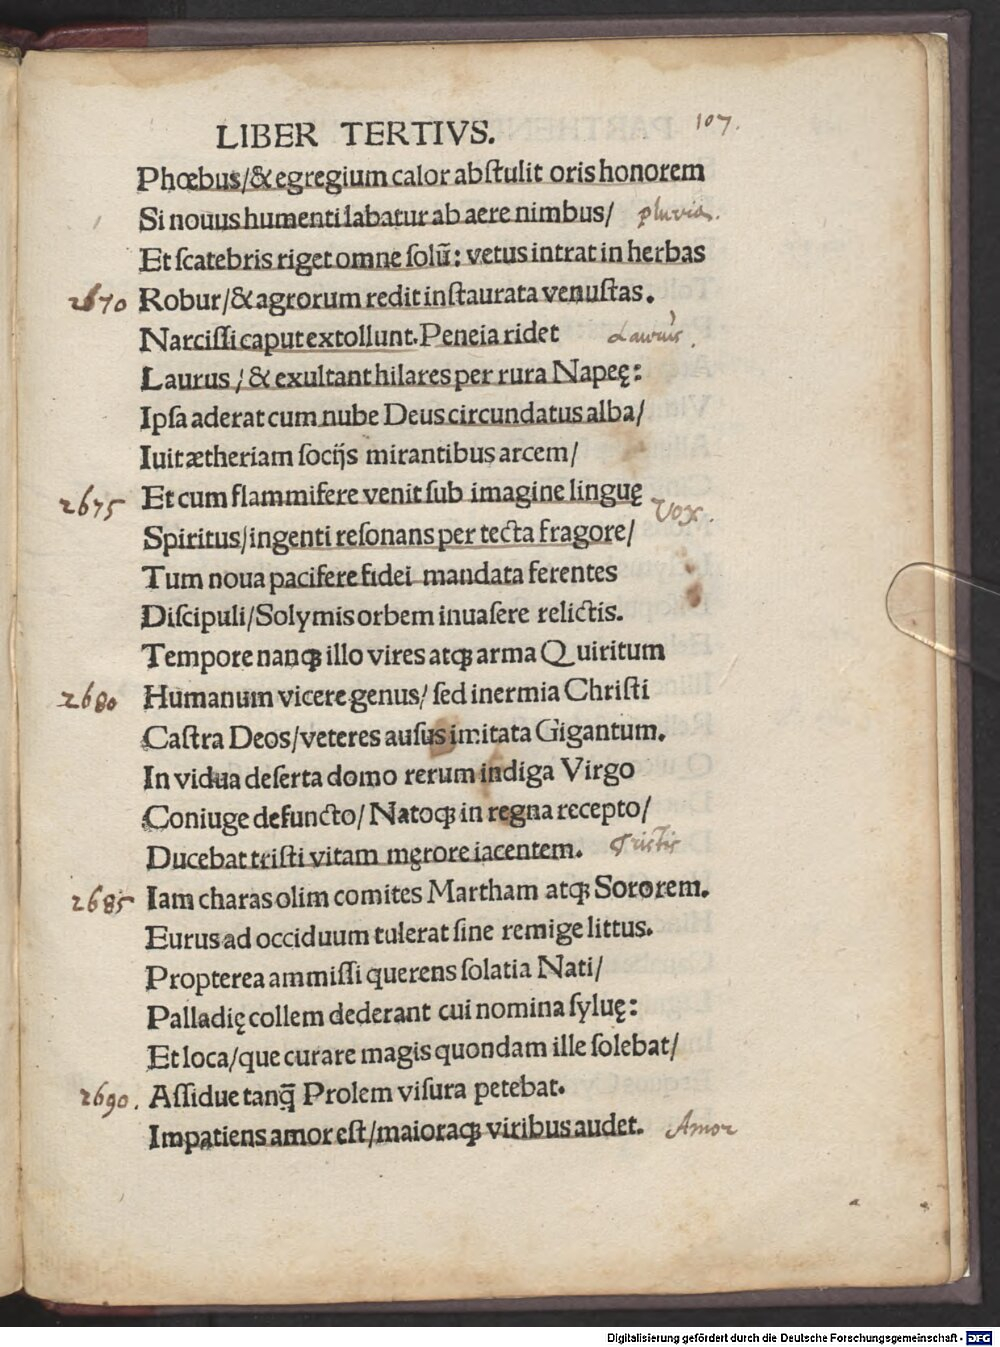 LIBER TERTIVS. 107.
Phœbus/& egregium calor abſtulit oris honorem
Si nouus humenti labatur ab aere nimbus/ pluvia.
Et ſcatebris riget omne ſolũ: vetus intrat in herbas
2670 Robur/& agrorum redit inſtaurata venuſtas.
Narciſſi caput extollunt. Peneia ridet Laurus.
Laurus/& exultant hilares per rura Napeę:
Ipſa aderat cum nube Deus circundatus alba/
Iuit ætheriam ſocijs mirantibus arcem/
2675 Et cum flammifere venit ſub imagine linguę Vox.
Spiritus/ingenti reſonans per tecta fragore/
Tum noua pacifere fidei mandata ferentes
Diſcipuli/Solymis orbem inuaſere relictis.
Tempore nanꝙ illo vires atꝙ arma Quiritum
2680 Humanum vicere genus/ ſed inermia Chriſti
Caſtra Deos/veteres auſus imitata Gigantum.
In vidua deſerta domo rerum indiga Virgo
Coniuge defuncto/ Natoꝙ in regna recepto/
Ducebat triſti vitam męrore iacentem. Tristis
2685 Iam charas olim comites Martham atꝙ Sororem.
Eurus ad occiduum tulerat ſine remige littus.
Propterea ammiſſi querens ſolatia Nati/
Palladię collem dederant cui nomina ſyluę:
Et loca/que curare magis quondam ille ſolebat/
2690. Aſſidue tanq̃ Prolem viſura petebat.
Impatiens amor eſt/maioraꝙ viribus audet. Amor
Digitalisierung gefördert durch die Deutsche Forschungsgemeinschaft - DFG